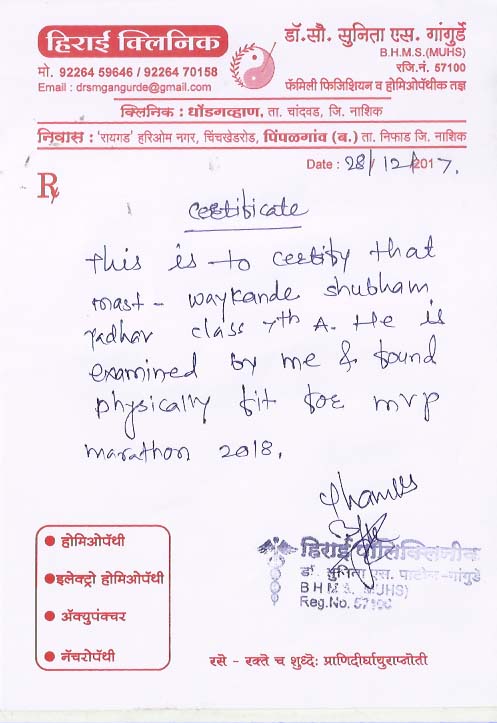 हिराई क्लिनिक
मो. 92264 59646 / 92264 70158
Email : drsmgangurde@gmail.com
डॉ.सौ. सुनिता एस. गांगुर्डे
B.H.M.S.(MUHS)
रजि.नं. 57100
फॅमिली फिजिशियन व होमिओपॅथीक तज्ञ
क्लिनिक : धोंडगव्हाण, ता. चांदवड, जि. नाशिक
निवास : 'रायगड' हरिओम नगर, चिंचखेडरोड, पिंपळगांव (ब.) ता. निफाड जि. नाशिक
Date : 28/12/2017.
Rx
Certificate
This is to certify that
mast - waykande shubham
yadhav class 7th A. He is
examined by me & found
physically fit for mvp
marathon 2018.
Thanks
हिराई पॉलिक्लिनीक
डॉ. सुनिता एस. पाटील-गांगुर्डे
B H M S. (MUHS)
Reg.No. 57100
होमिओपॅथी
इलेक्ट्रो होमिओपॅथी
ॲक्युपंक्चर
नॅचरोपॅथी
रसे - रक्ते च शुध्दे: प्राणिदीर्घायुराप्नोती